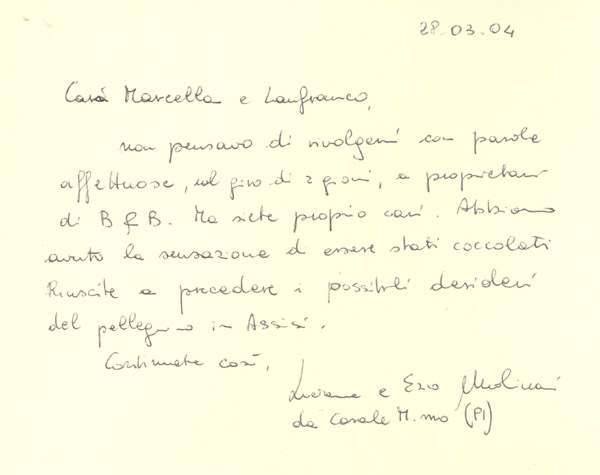 28.03.04
Cari Marcella e Lanfranco,
non pensavo di rivolgermi con parole
affettuose, nel giro di 2 giorni, a proprietari
di B & B. Ma siete proprio cari. Abbiamo
avuto la sensazione di essere stati coccolati
Riuscite a precedere i possibili desideri
del pellegrino in Assisi.
Continuate così,
Luciana e Ezio Molinari
da Casale M.mo (PI)